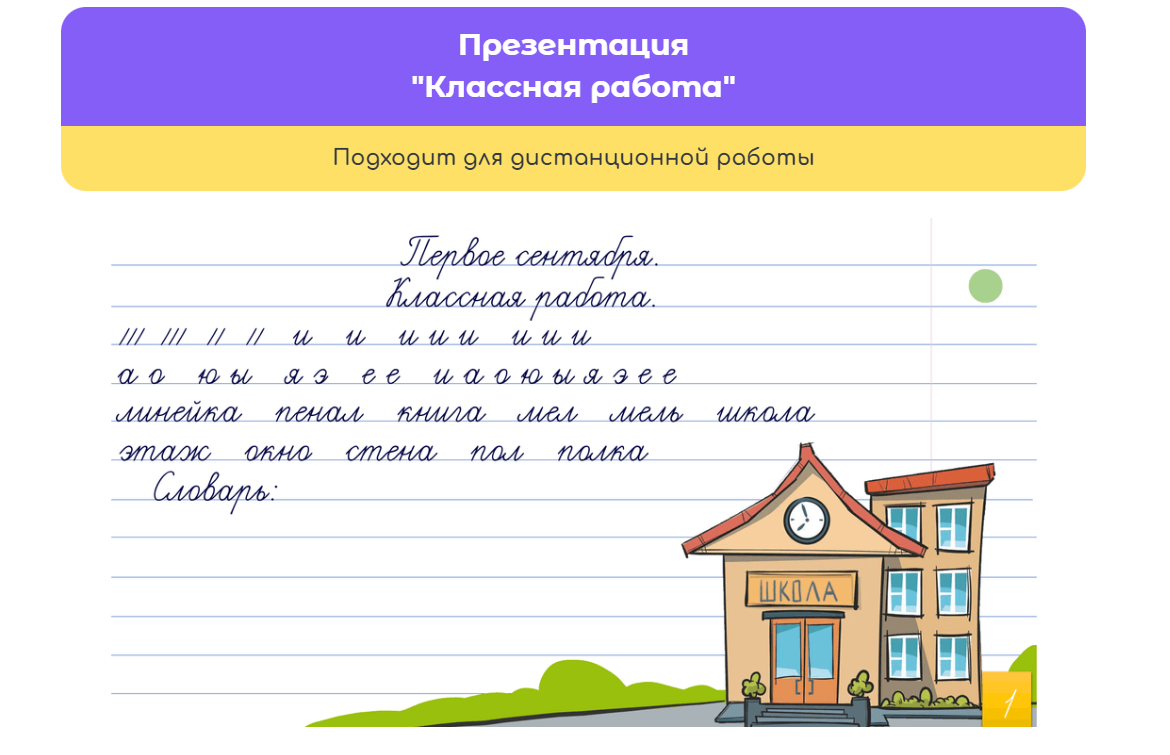 Презентация
"Классная работа"
Подходит для дистанционной работы
Первое сентября.
Классная работа.
/// /// // // и и и и и и и и
а о ю ы я э е е и а о ю ы я э е е
линейка пенал книга мел мель школа
этаж окно стена пол полка
Словарь:
ШКОЛА
1